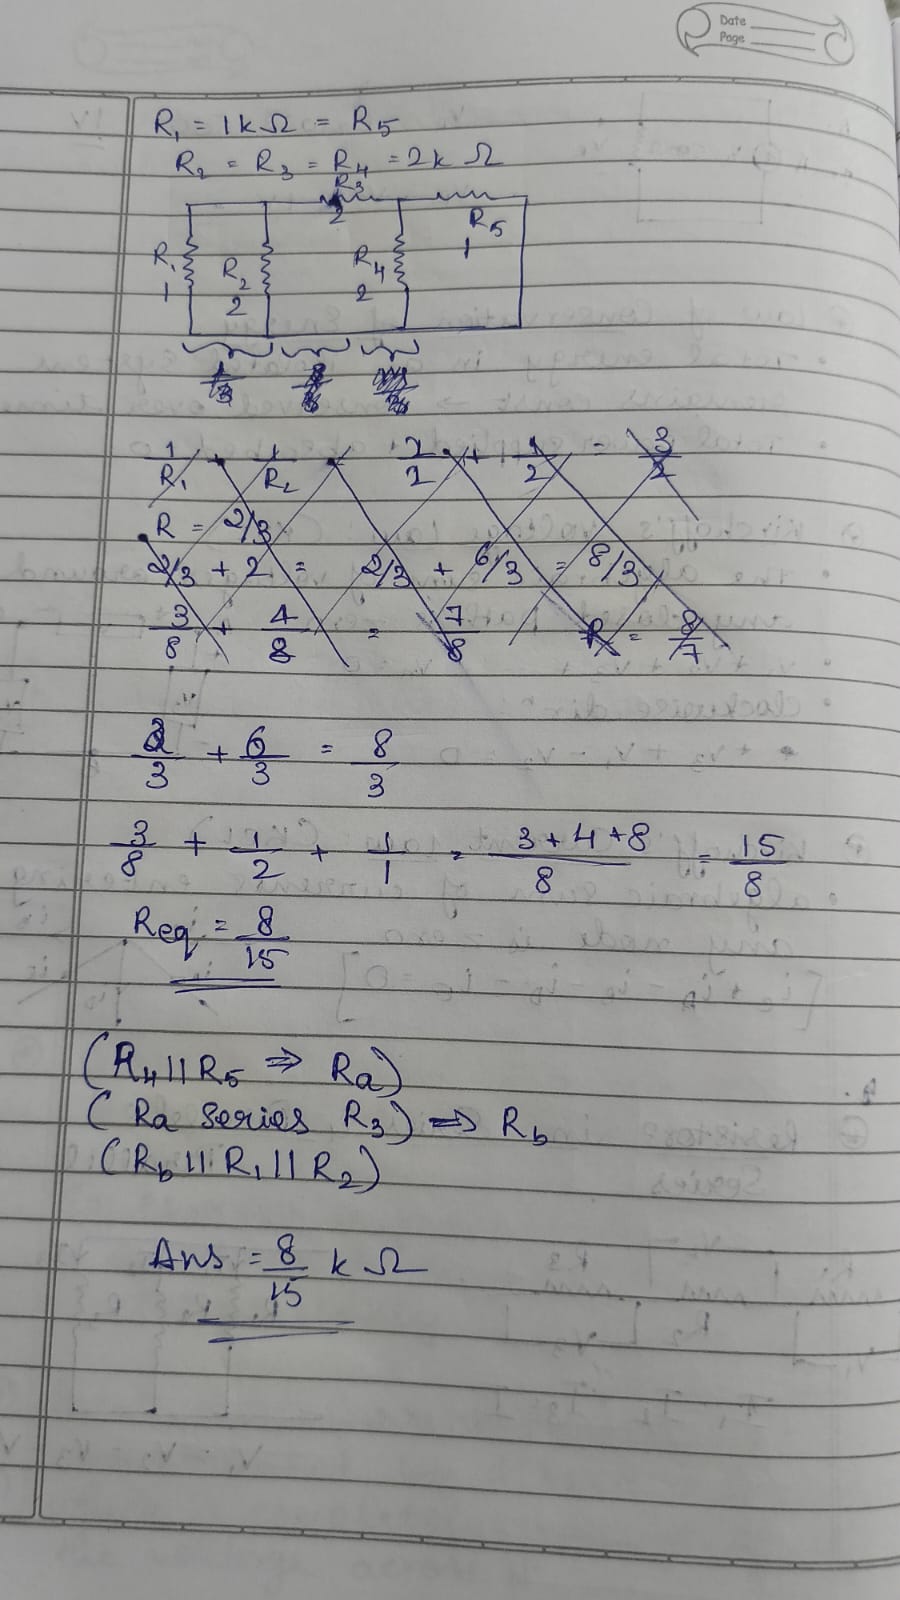 Date
Page
R₁ = 1kΩ = R₅
R₂ = R₃ = R₄ = 2kΩ
R₃
2
R₅
1
R₁
1
R₂
2
R₄
2
1/R₁ + 1/R₂ 1/1 + 1/2 = 3/2
R = 2/3
2/3 + 2 = 2/3 + 6/3 = 8/3
3/8 + 4/8 = 7/8 R = 8/7
2/3 + 6/3 = 8/3
3/8 + 1/2 + 1/1 = 3+4+8/8 = 15/8
Req = 8/15
(R₄||R₅ ⇒ Ra)
(Ra series R₃) ⇒ R_b
(R_b || R₁ || R₂)
Ans = 8/15 kΩ